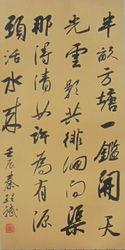 半畝方塘一鑑開天
光雲影共徘徊問渠
那得清如許為有源
頭活水來 壬辰 秦